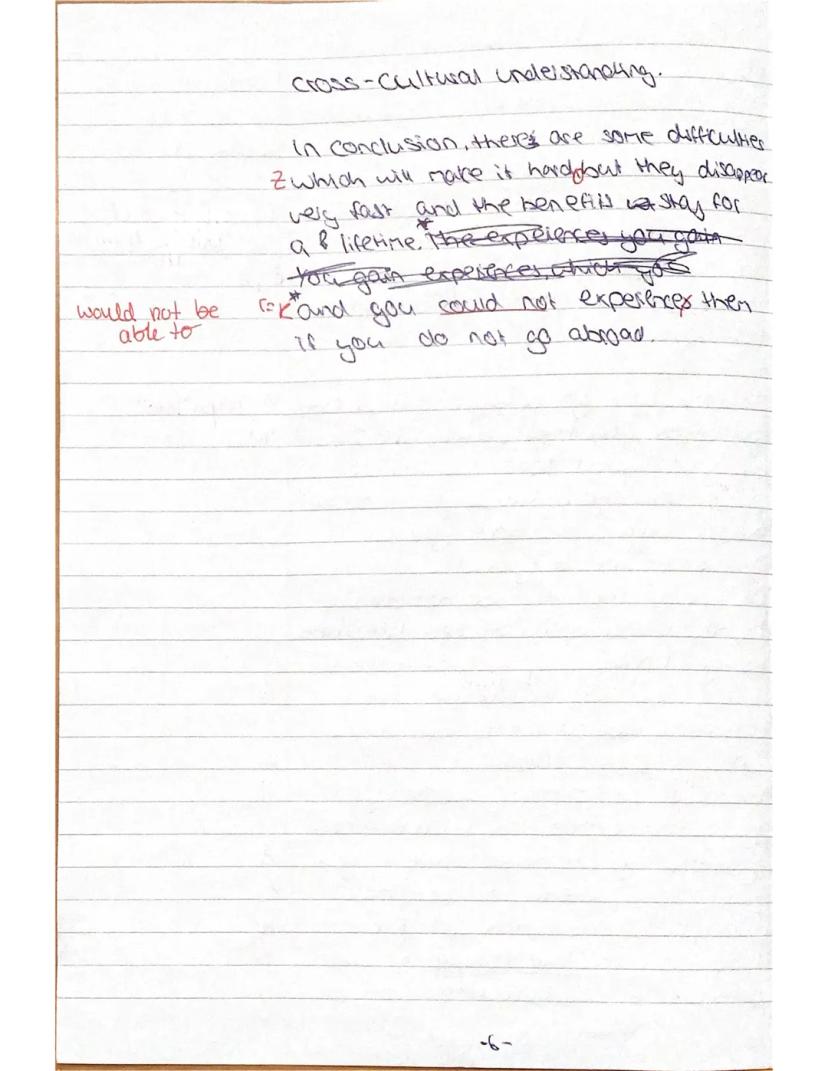 cross-cultural understanding.
In conclusion, there are some difficulties
Z which will make it hard, but they disappear
very fast and the benefits stay for
a lifetime. The experiences you gain
You gain experiences, which you
would not be (=K *and you could not experiences them
able to if you do not go abroad.
-6-